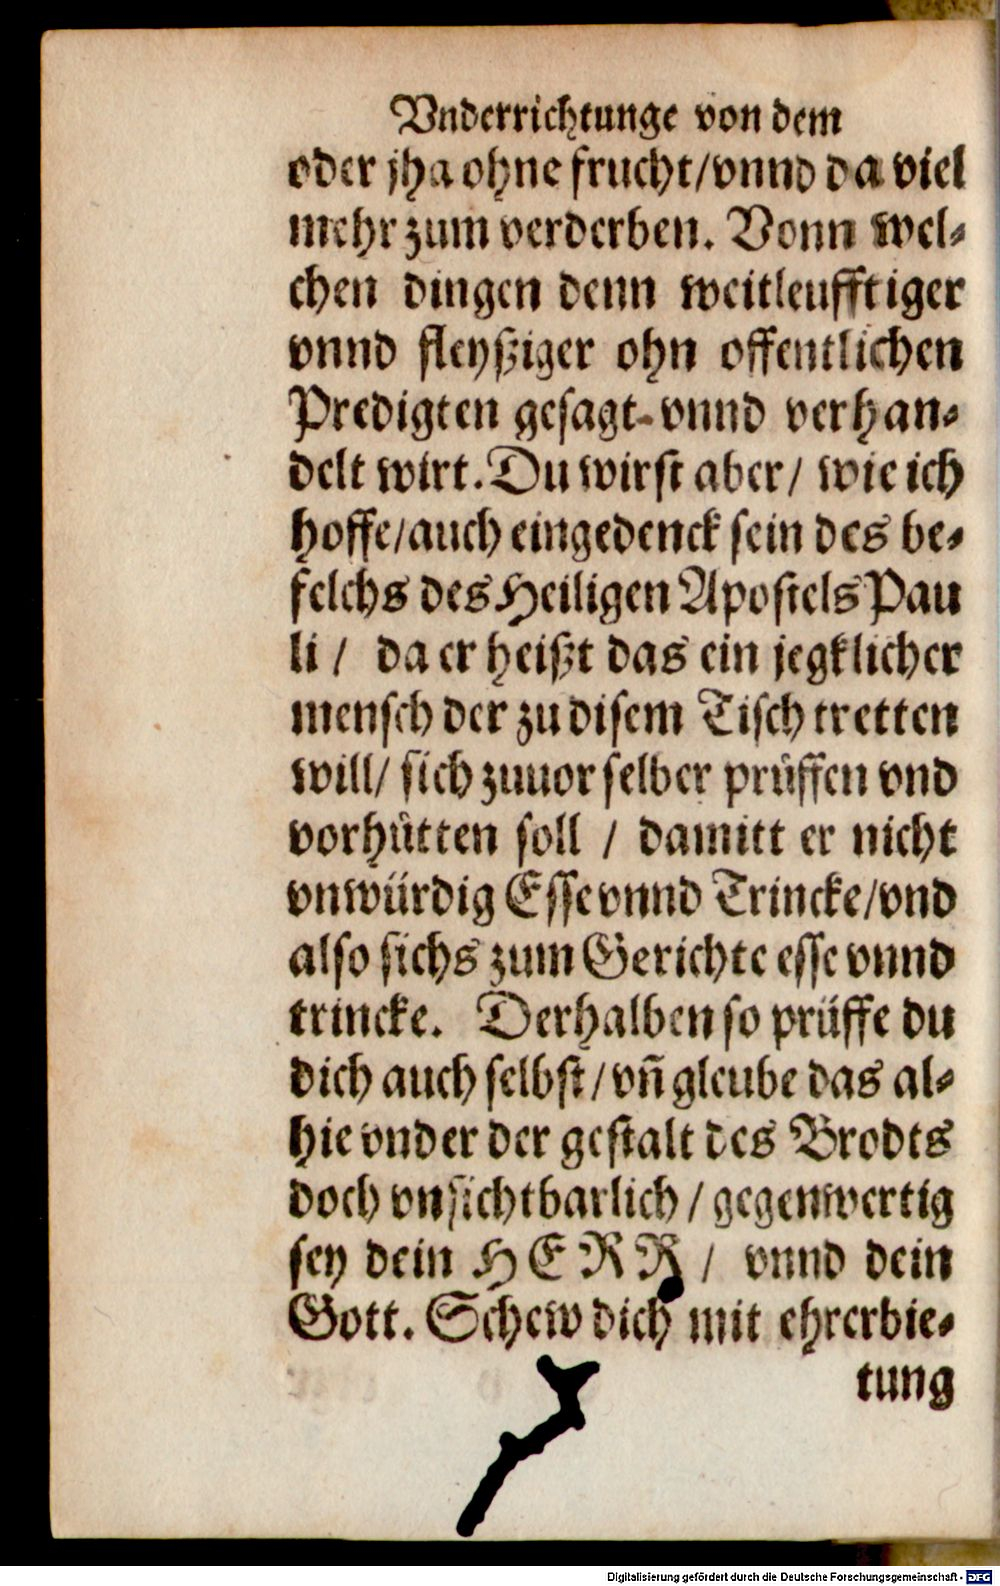 Vnderrichtunge von dem
oder jha ohne frucht/vnnd da viel
mehr zum verderben. Vonn wel-
chen dingen denn weitleufftiger
vnnd fleysziger ohn offentlichen
Predigten gesagt-vnnd verhan-
delt wirt. Du wirst aber/ wie ich
hoffe/auch eingedenck sein des be-
felchs des Heiligen Apostels Pau
li / da er heißt das ein jegklicher
mensch der zu disem Tisch tretten
will/ sich zuuor selber prüffen vnd
vorhütten soll / damitt er nicht
vnwürdig Esse vnnd Trincke/vnd
also sichs zum Gerichte esse vnnd
trincke. Derhalben so prüffe du
dich auch selbst/vñ gleube das al-
hie vnder der gestalt des Brodts
doch vnsichtbarlich/gegenwertig
sey dein HERR/ vnnd dein
Gott. Schew dich mit ehrerbie-
tung
Digitalisierung gefördert durch die Deutsche Forschungsgemeinschaft - DFG